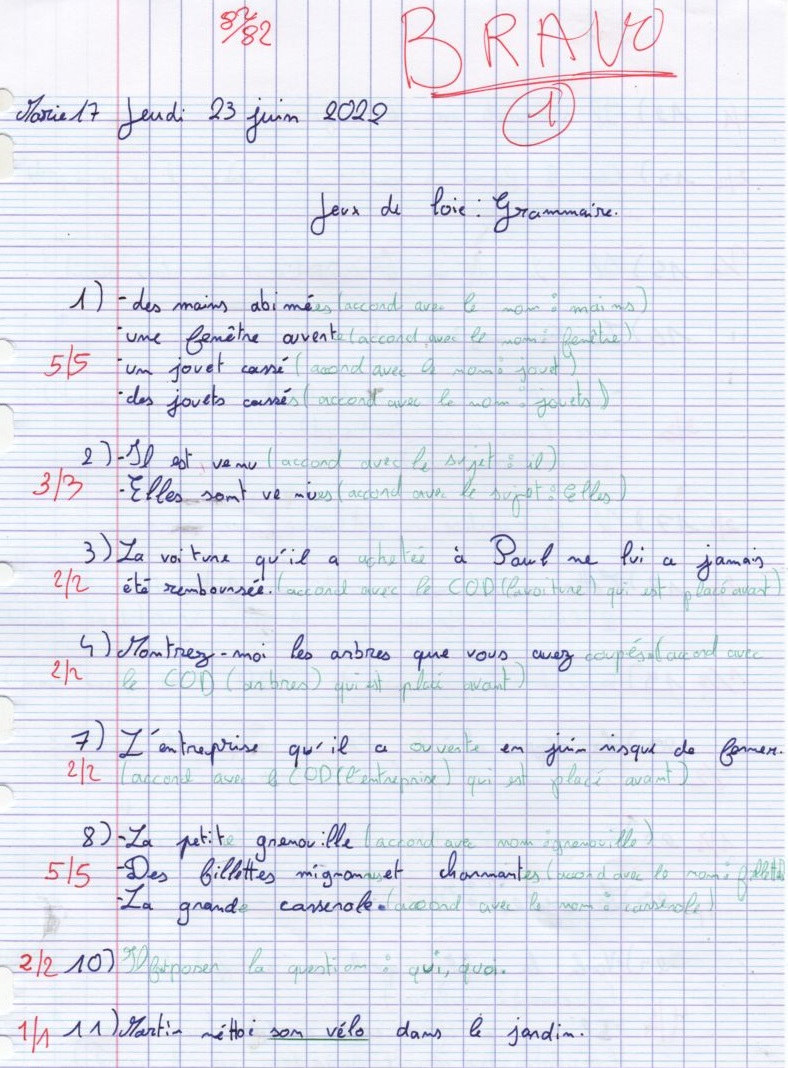 82/82
BRAVO
1
Marie 17 Jeudi 23 juin 2022
Jeux de loie : Grammaire.
1) - des mains abimées (accord avec le nom : mains)
- une fenêtre ouverte (accord avec le nom : fenêtre)
5/5 - un jouet cassé (acord avec le nom : jouet)
- des jouets cassés (accord avec le nom : jouets)
2) - Il est venu (accord avec le sujet : il)
3/3 - Elles sont venues (accord avec le sujet : Elles)
3) La voiture qu'il a achetée à Paul ne lui a jamais
2/2 été remboursée. (accord avec le COD (la voiture) qui est placé avant)
4) Montrez-moi les arbres que vous avez coupés (accord avec
2/2 le COD (arbres) qui est placé avant)
7) L'entreprise qu'il a ouverte en juin risque de fermer.
2/2 (accord avec le COD (l'entreprise) qui est placé avant)
8) - La petite grenouille (accord avec nom : grenouille)
5/5 - Des fillettes mignonnes et charmantes (accord avec le nom : fillettes)
- La grande casserole. (accord avec le nom : casserole)
2/2 10) poser la question : qui, quoi.
1/1 11) Martin néttoi son vélo dans le jardin.